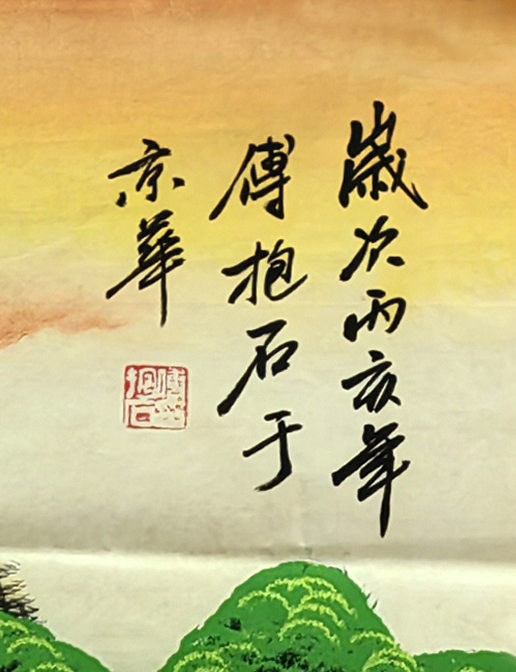 歲次丙亥年
傅抱石于
京華